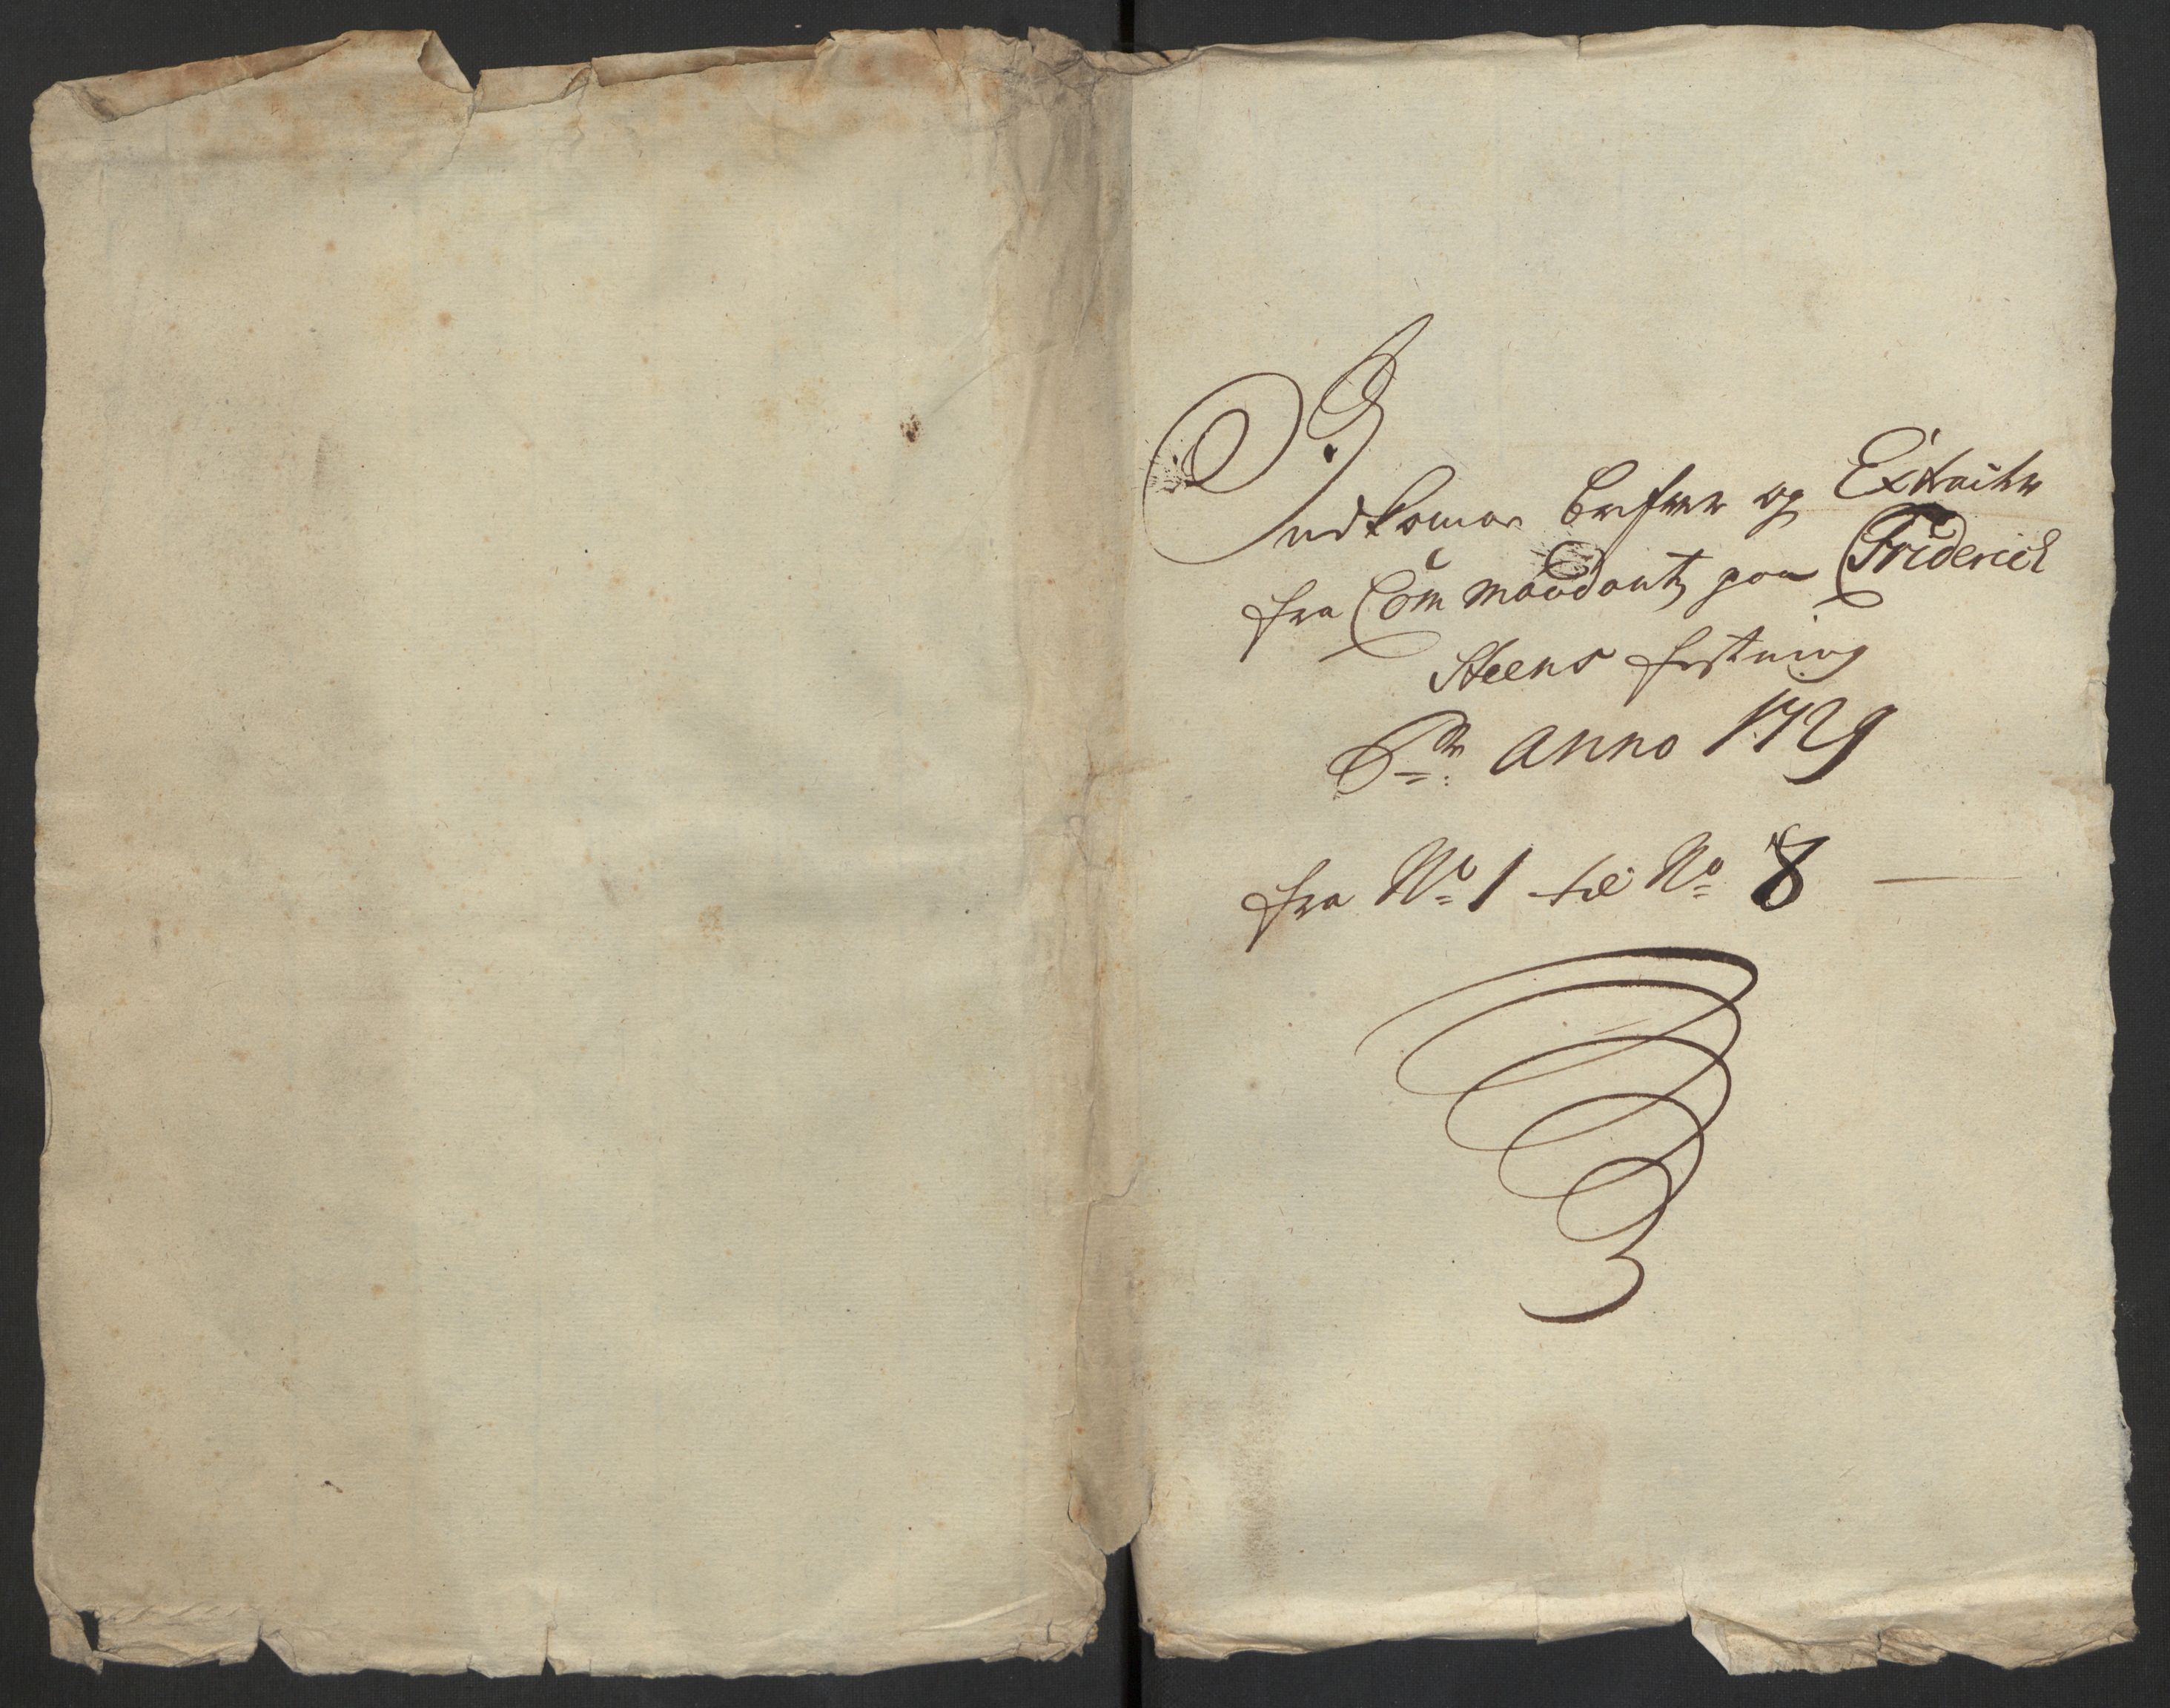 Indkomne brefver og Extracter
fra Commendant paa Friderich
Steens festning
Pro Anno 1729
fra No 1 til No 8